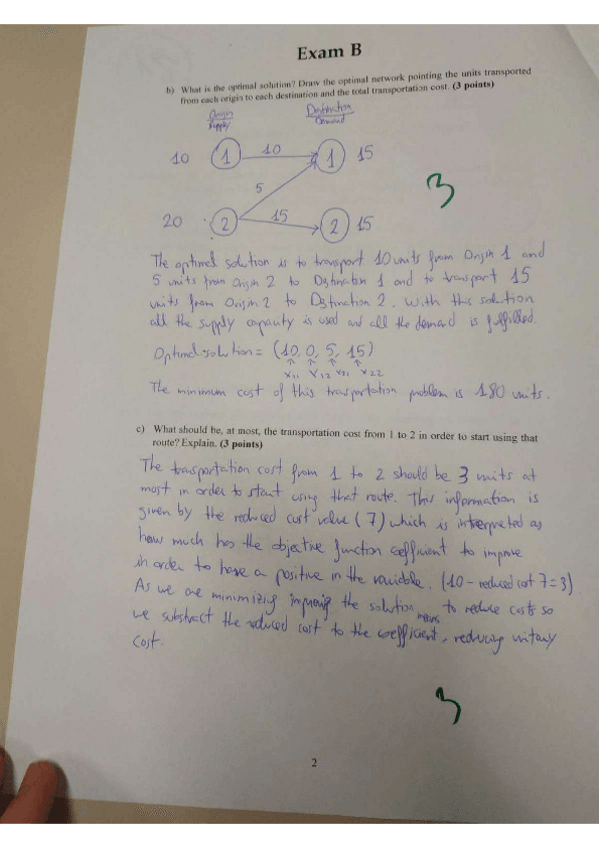 Exam B
b) What is the optimal solution? Draw the optimal network pointing the units transported
from each origin to each destination and the total transportation cost. (3 points)
Origin Destination
Supply Demand
10 1 10 1 15
5
3
20 2 15 2 15
The optimal solution is to transport 10 units from Origin 1 and
5 units from Origin 2 to Destination 1 and to transport 15
units from Origin 2 to Destination 2. With this solution
all the supply capacity is used and all the demand is fulfilled.
Optimal solution = (10, 0, 5, 15)
X11 X12 X21 X22
The minimum cost of this transportation problem is 180 units.
c) What should be, at most, the transportation cost from 1 to 2 in order to start using that
route? Explain. (3 points)
The transportation cost from 1 to 2 should be 3 units at
most in order to start using that route. This information is
given by the reduced cost value (7) which is interpreted as
how much has the objective function coefficient to improve
in order to have a positive in the variable. (10 - reduced cost 7 = 3)
As we are minimizing improving the solution means to reduce costs so
we substract the reduced cost to the coefficient, reducing unitary
cost.
3
2